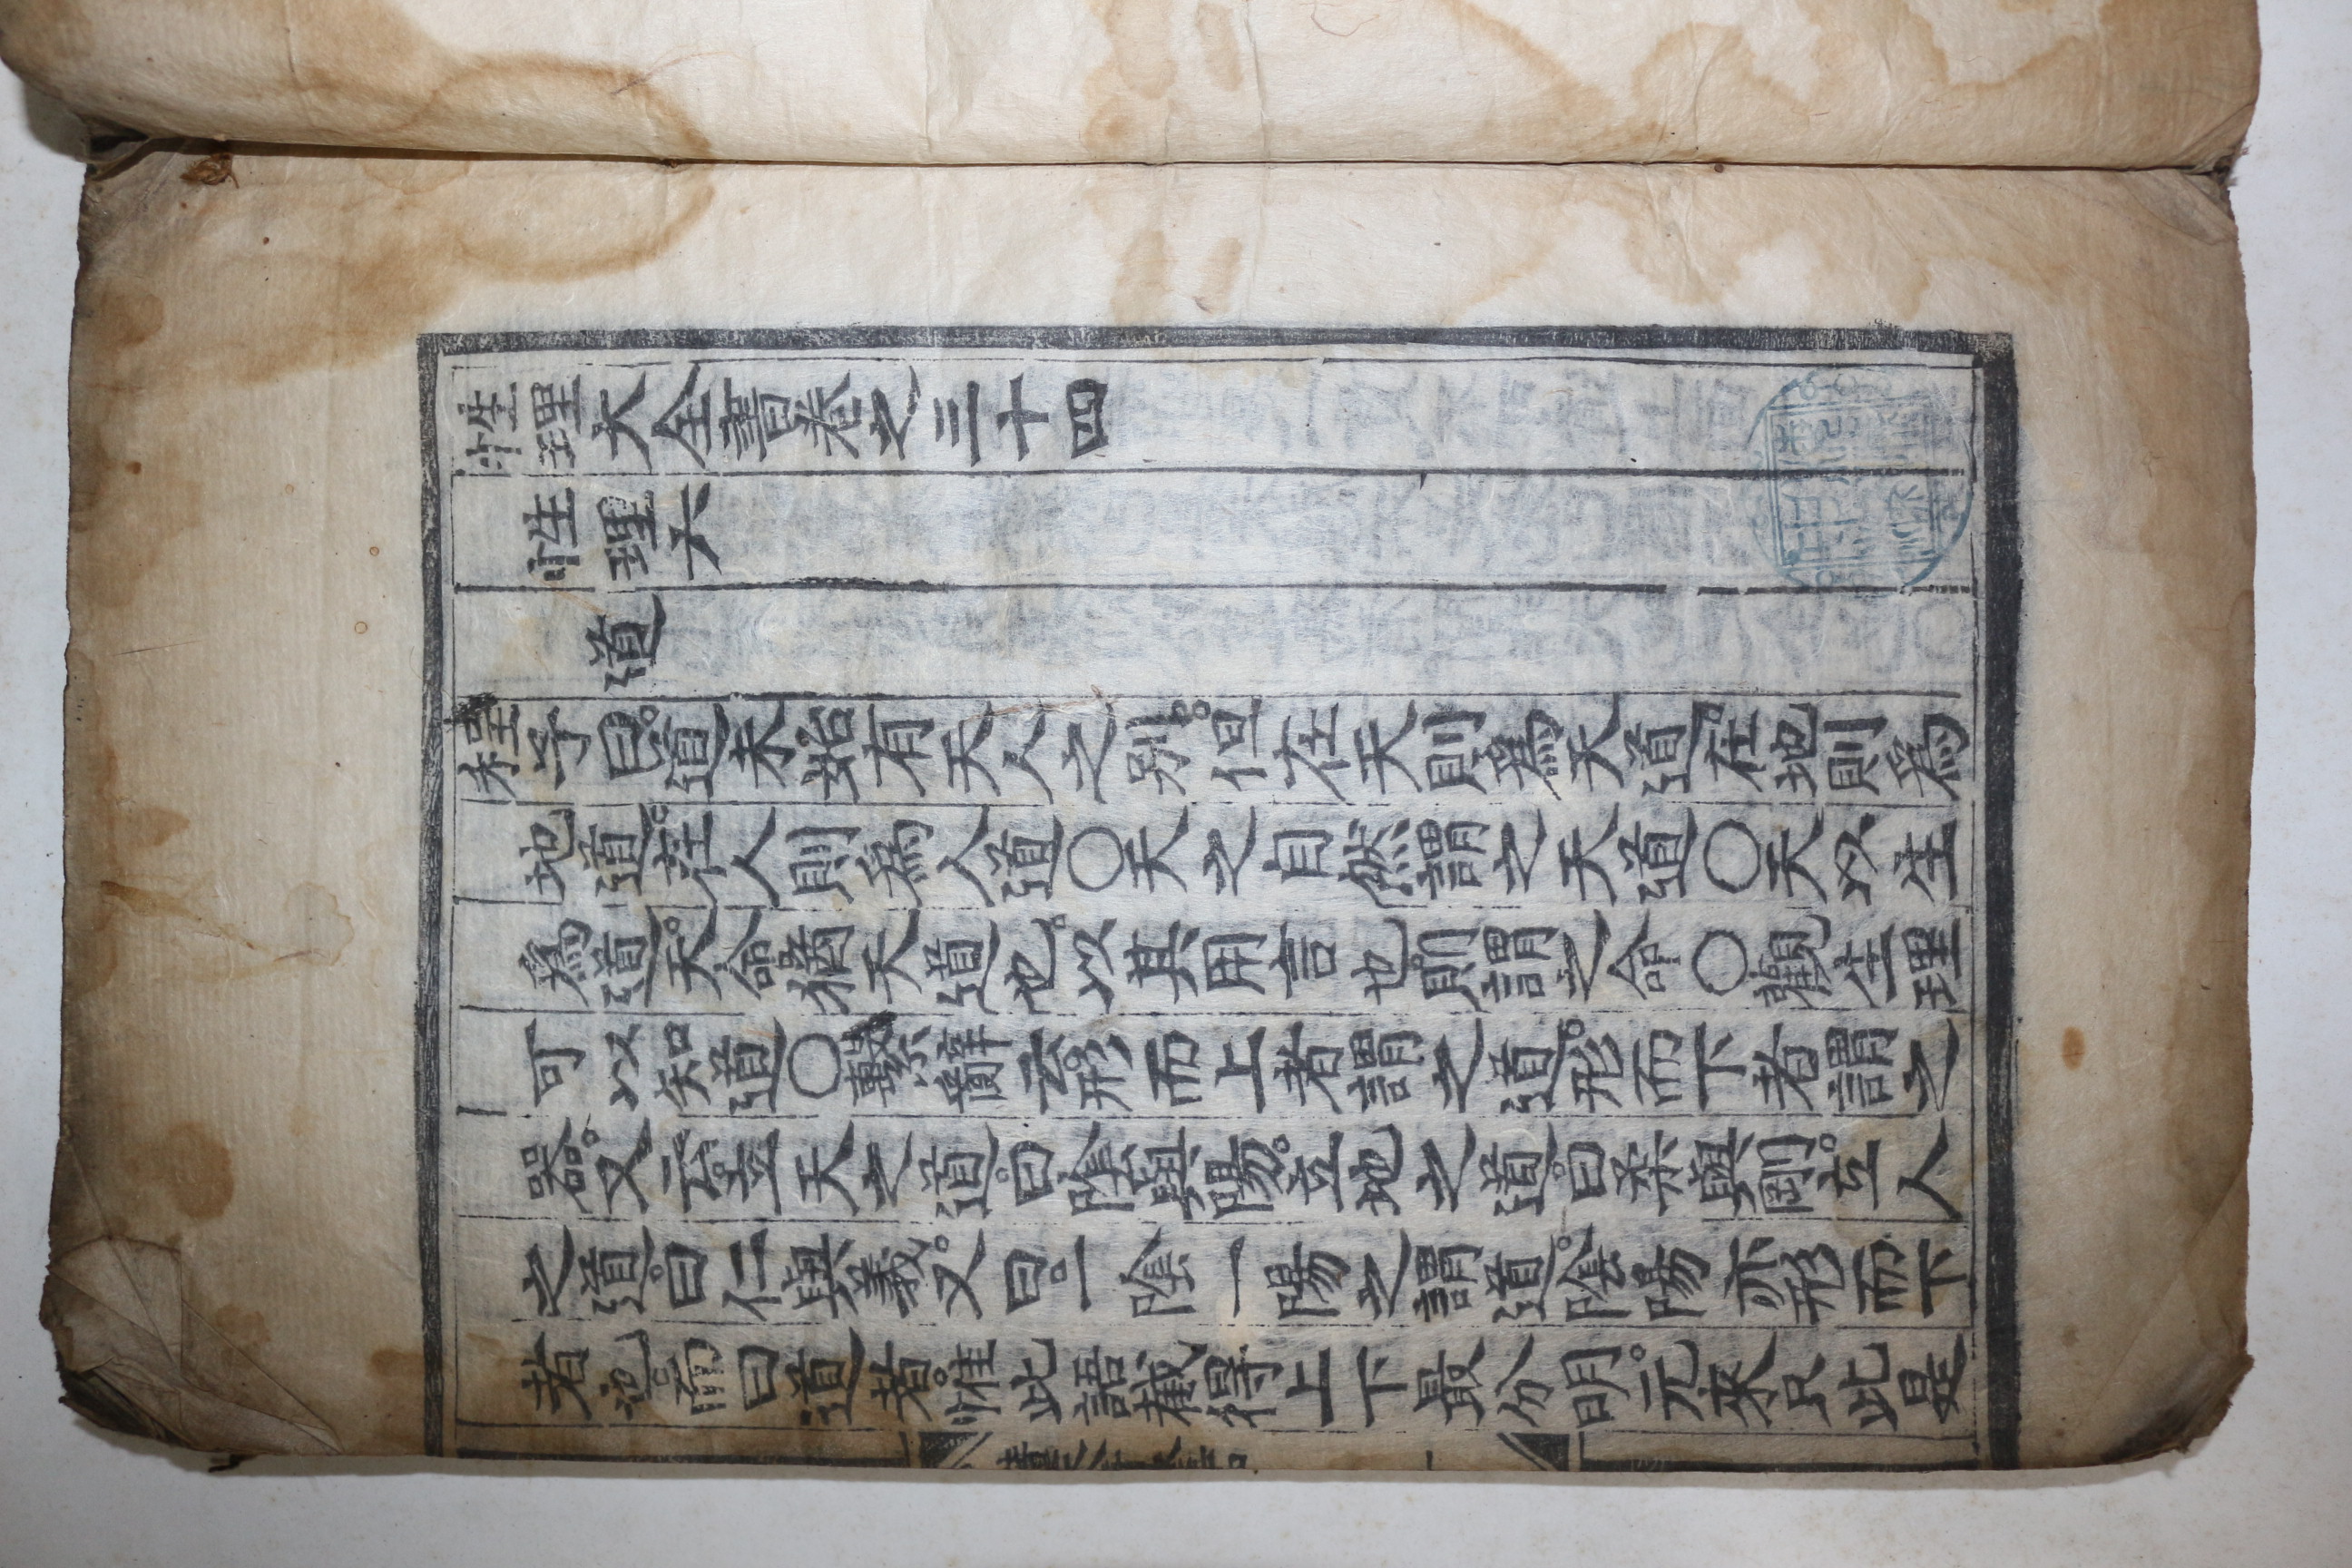 性理大全書卷之三十四
性理六
道
程子曰。道未始有天人之别。但在天則爲天道。在地則爲
地道。在人則爲人道○天之自然謂之天道○天以生
爲道。天命。猶天道也。以其用言也。則謂之命○觀生理
可以知道○繫辭云。形而上者謂之道。形而下者謂之
器。又云。立天之道。曰陰與陽。立地之道。曰柔與剛。立人
之道。曰仁與義。又曰。一陰一陽之謂道。陰陽亦形而下
者也。而曰道者。惟此語截得上下最分明。元來只此是